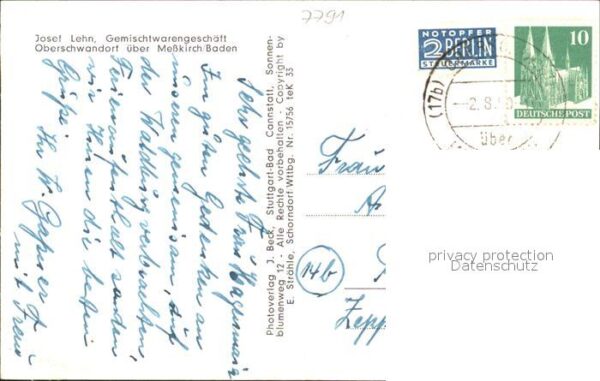 7791
Josef Lehn, Gemischtwarengeschäft
Oberschwandorf über Meßkirch/Baden
Sehr geehrte Frau
Im guten Gedenken an
unseren gemeinsam, auf
der Waldburg verbrachten,
Ferienaufenthalt senden
wir Ihnen die besten
Grüße Ihr W.
mit Frau
Photoverlag J. Beck, Stuttgart-Bad Cannstatt, Sonnen-
blumenweg 12 - Alle Rechte vorbehalten - Copyright by
E. Ströhle, Schorndorf-Wttbg. Nr. 15/56 teK 33
NOTOPFER
2 BERLIN
STEUERMARKE
10
DEUTSCHE POST
(17b)
-2.8.
über
Frau
14b
Zepp
privacy protection
Datenschutz